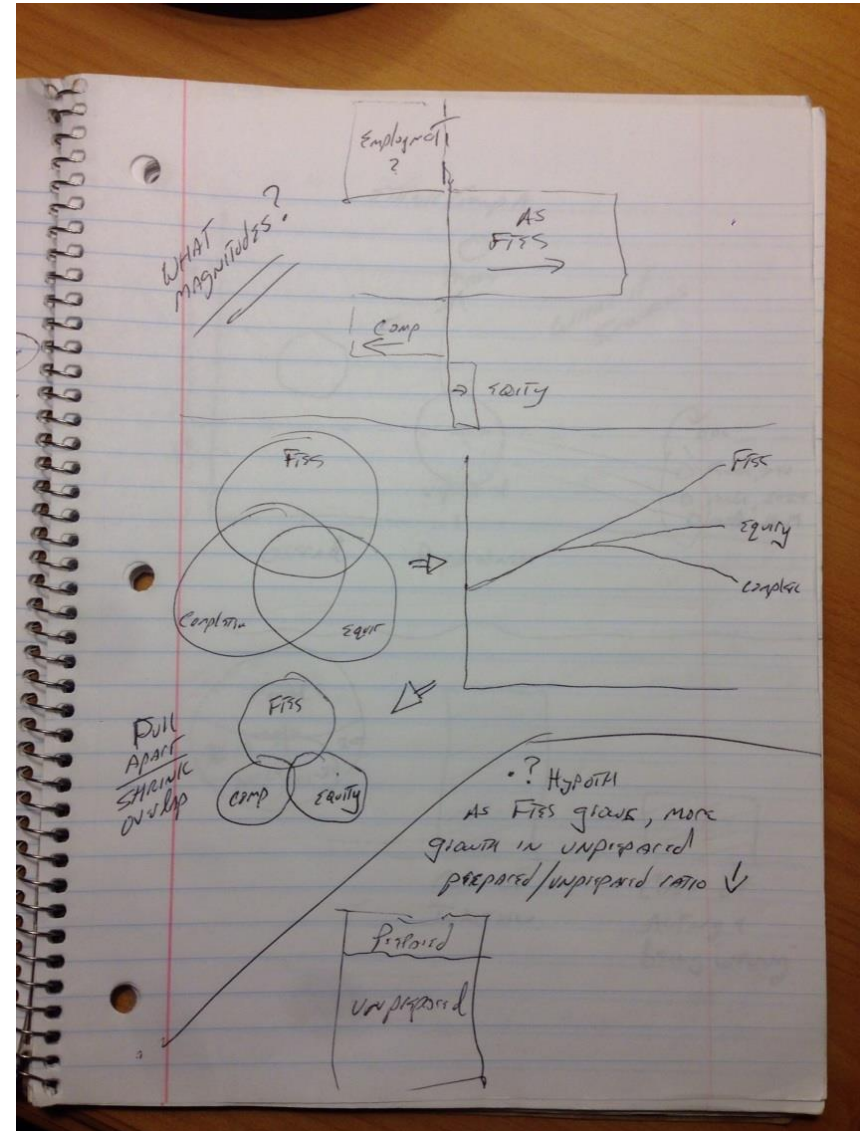 Employmet
?
WHAT
MAGNITUDES?
AS
FTES
Comp
EQUITY
FTES
Completin
Equit
FTES
Equity
Complete
Pull
APART
SHRINK
Overlap
FTES
Comp
Equity
? Hypoth
As FTES grows, more
growth in unprepared
prepared/unprepared ratio ↓
Prepared
unprepared